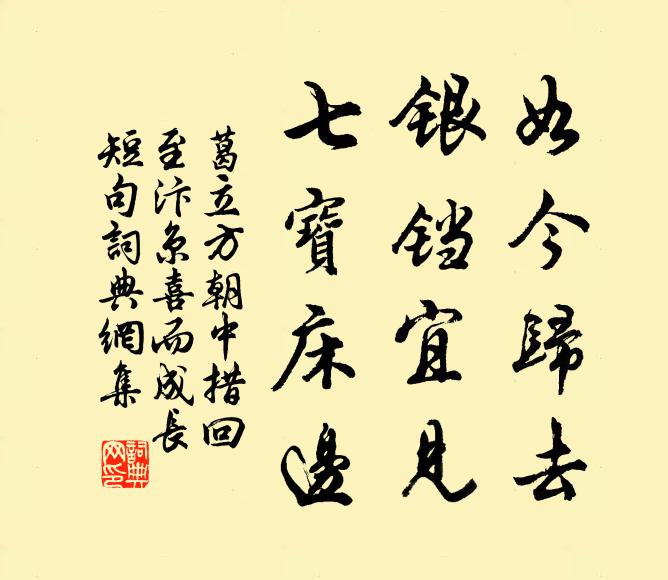 如今歸去
银铛宜見
七寶床邊
葛立方朝中措回
至汴京喜而成長
短句詞典網集
詞典网印